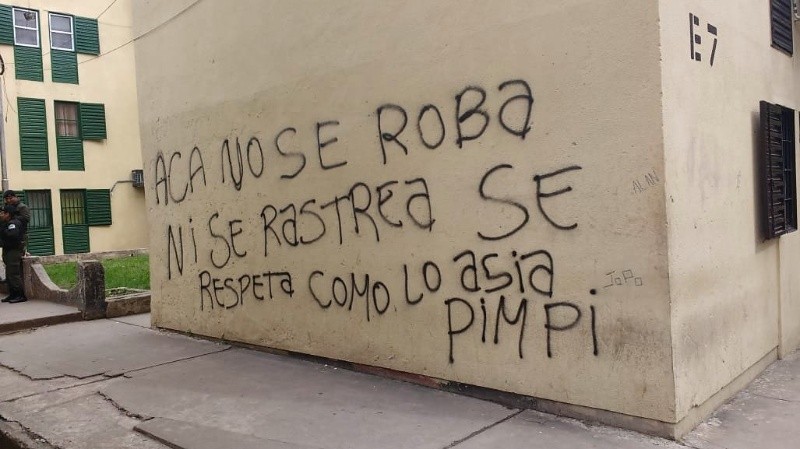 ACA NO SE ROBA
Ni SE RASTREA SE
RESPETA COMO LO asia
PiMPi
E 7
ALAN
JoPo